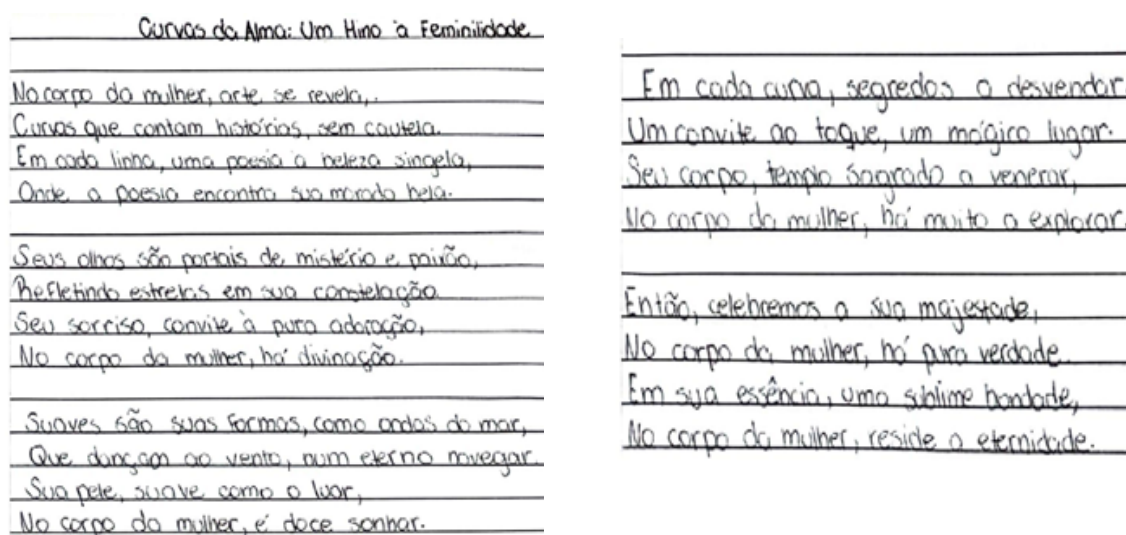 Curvas da Alma: Um Hino à Feminilidade
No corpo da mulher, arte se revela,.
Curvas que contam histórias, sem cautela.
Em cada linha, uma poesia a beleza singela,
Onde a poesia encontra sua morada bela.
Seus olhos são portais de mistério e paixão,
Refletindo estrelas em sua constelação.
Seu sorriso, convite à pura adoração,
No corpo da mulher, há divinação.
Suaves são suas formas, como ondas do mar,
Que dançam ao vento, num eterno navegar.
Sua pele, suave como o luar,
No corpo da mulher, é doce sonhar.
Em cada curva, segredos a desvendar.
Um convite ao toque, um mágico lugar.
Seu corpo, templo sagrado a venerar,
No corpo da mulher, há muito a explorar.
Então, celebremos a sua majestade,
No corpo da mulher, há pura verdade.
Em sua essência, uma sublime bondade,
No corpo da mulher, reside a eternidade.